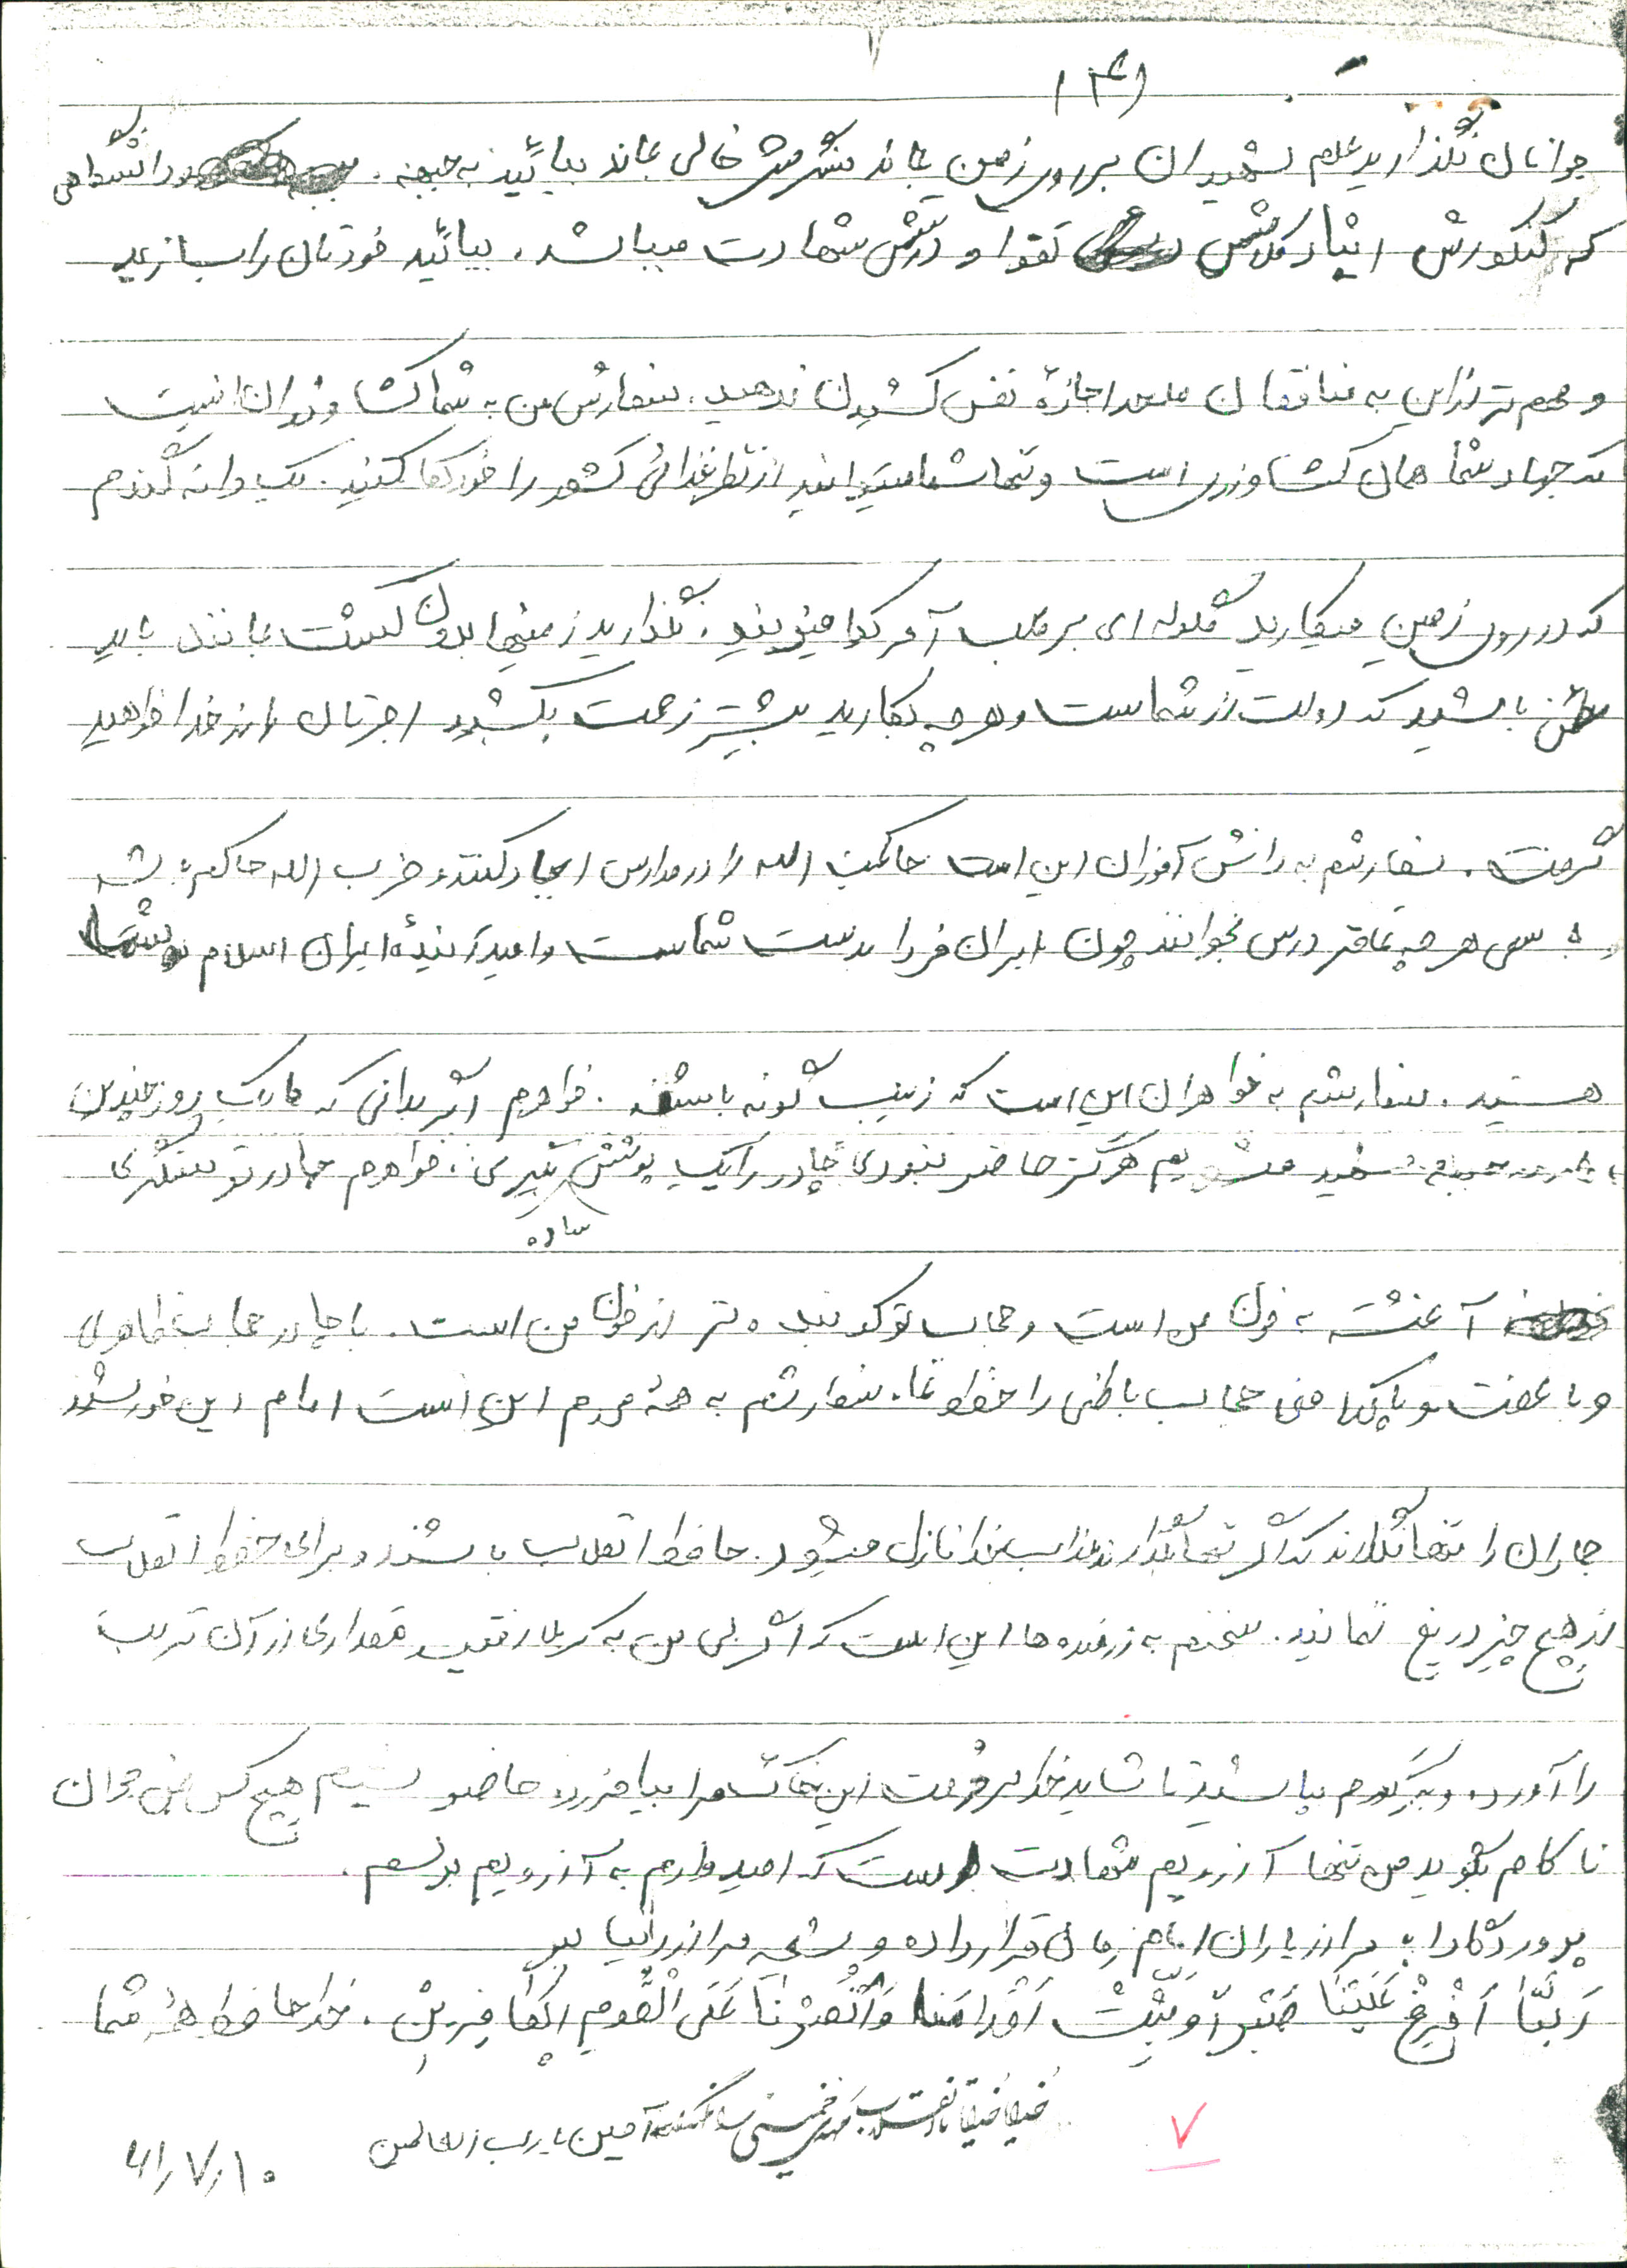 (۴)
جوانان نگذارید علم شهیدان بر روی زمین بماند سنگرهایش خالی بماند بیائید به جبهه. دانشگاهی
که کنکورش ایثار کلاسش تقوا و درسش شهادت میباشد. بیائید خودتان را بسازید
و مهم تر از این به منافقان ملحد اجازهٔ نفس کشیدن ندهید. سفارش من به شما کشاورزان اینست
که جهاد شما همان کشاورزی است و تنها شما میتوانید از نظر غذائی کشور را خودکفا کنید. یک دانه گندم
که در روی زمین میکارید گلوله ای بر قلب آمریکا میزنید. نگذارید زمینها بدون کشت بمانند باید
مطمئن باشید که دولت از شماست و هر چه بکارید بیشتر زحمت بکشید اجرتان را از خدا خواهید
گرفت. سفارشم به دانش آموزان این است حاکمیت الله را در مدارس ایجاد کنند و حزب الله حاکم باشد
و سعی هر چه تمامتر درس بخوانند چون ایران فردا بدست شماست و امید آیندهٔ ایران اسلام شما
هستید. سفارشم به خواهران این است که زینب گونه باشند. خواهرم اگر بدانی که ما در یک روز چندین
شهید میشویم هرگز حاضر نبودی چادر را یک پوشش ساده بگیری. خواهرم چادر تو سنگری
آغشته به خون من است و حجاب تو کوبنده تر از خون من است. با چادر حجاب ظاهری
و با عفت و پاکدامنی حجاب باطنی را حفظ نما. سفارشم به همهٔ مردم این است امام این خورشید
جماران را تنها نگذارند که اگر تنها بگذارند عذاب خدا نازل میشود. حافظ انقلاب باشند و برای حفظ انقلاب
از هیچ چیز دریغ ننمایند. سخنم به رزمنده ها این است که اگر بی من به کربلا رفتید مقداری از آن تربت
را آورده و به گورم بپاشید تا شاید خدا به حرمت این خاک مرا بیامرزد. حاضر نیستم هیچ کس بمن جوان
ناکام بگوید من تنها آرزویم شهادت است که امیدوارم به آرزویم برسم.
پروردگارا مرا از یاران امام زمان قرار داده و شهید مرا از دنیا ببر
رَبَّنا اَفْرِغْ عَلَیْنا صَبْراً وَ ثَبِّتْ اَقْدامَنا وَانْصُرْنا عَلَی الْقَومِ الْکافِرینَ. خداحافظ همهٔ شما
خدایا خدایا تا انقلاب مهدی خمینی را نگهدار آمین یا رب العالمین
۶۱٫۷٫۱۰
۷